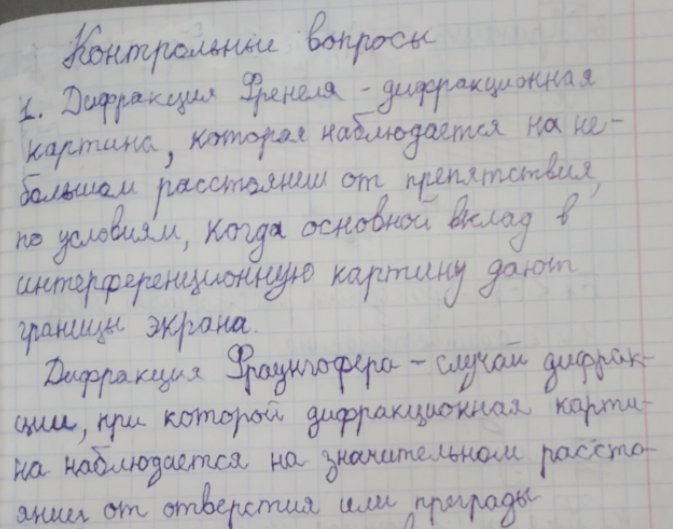 Контрольные вопросы
1. Дифракция Френеля - дифракционная
картина, которая наблюдается на не-
большом расстоянии от препятствия,
по условиям, когда основной вклад в
интерференционную картину дают
границы экрана.
Дифракция Фраунгофера - случай дифрак-
ции, при которой дифракционная карти-
на наблюдается на значительном рассто-
янии от отверстия или преграды